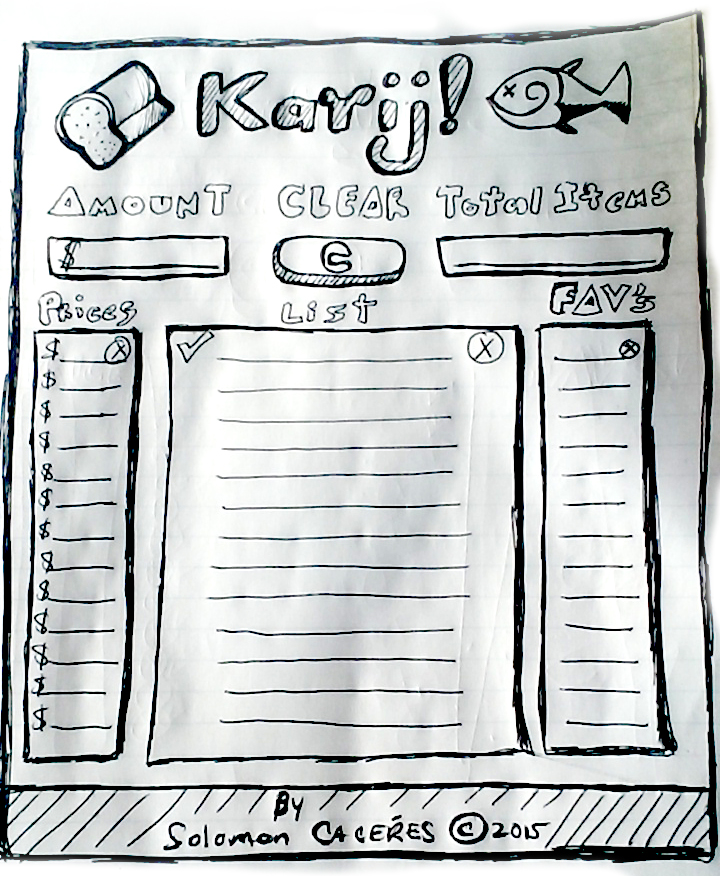 Karij!
AMOUNT CLEAR Total Items
$ C
Prices LIST FAV's
$ X ✓ X X
$
$
$
$
$
$
$
$
$
$
$
$
BY
Solomon CACEŔES © 2015